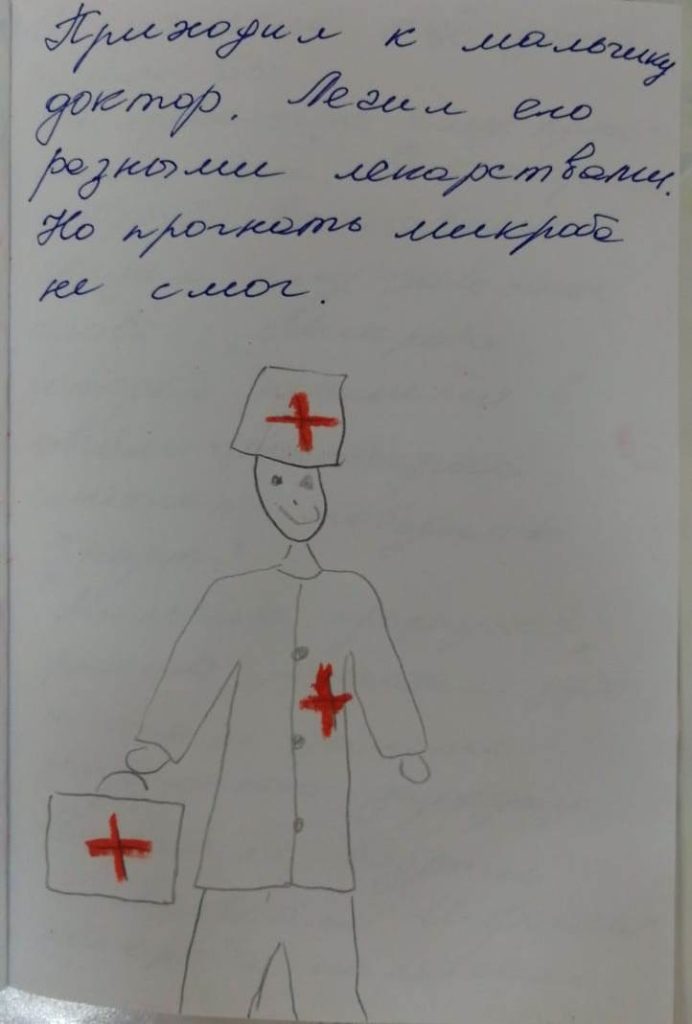 Приходил к мальчику
доктор. Лечил его
разными лекарствами.
Но прогнать микроба
не смог.